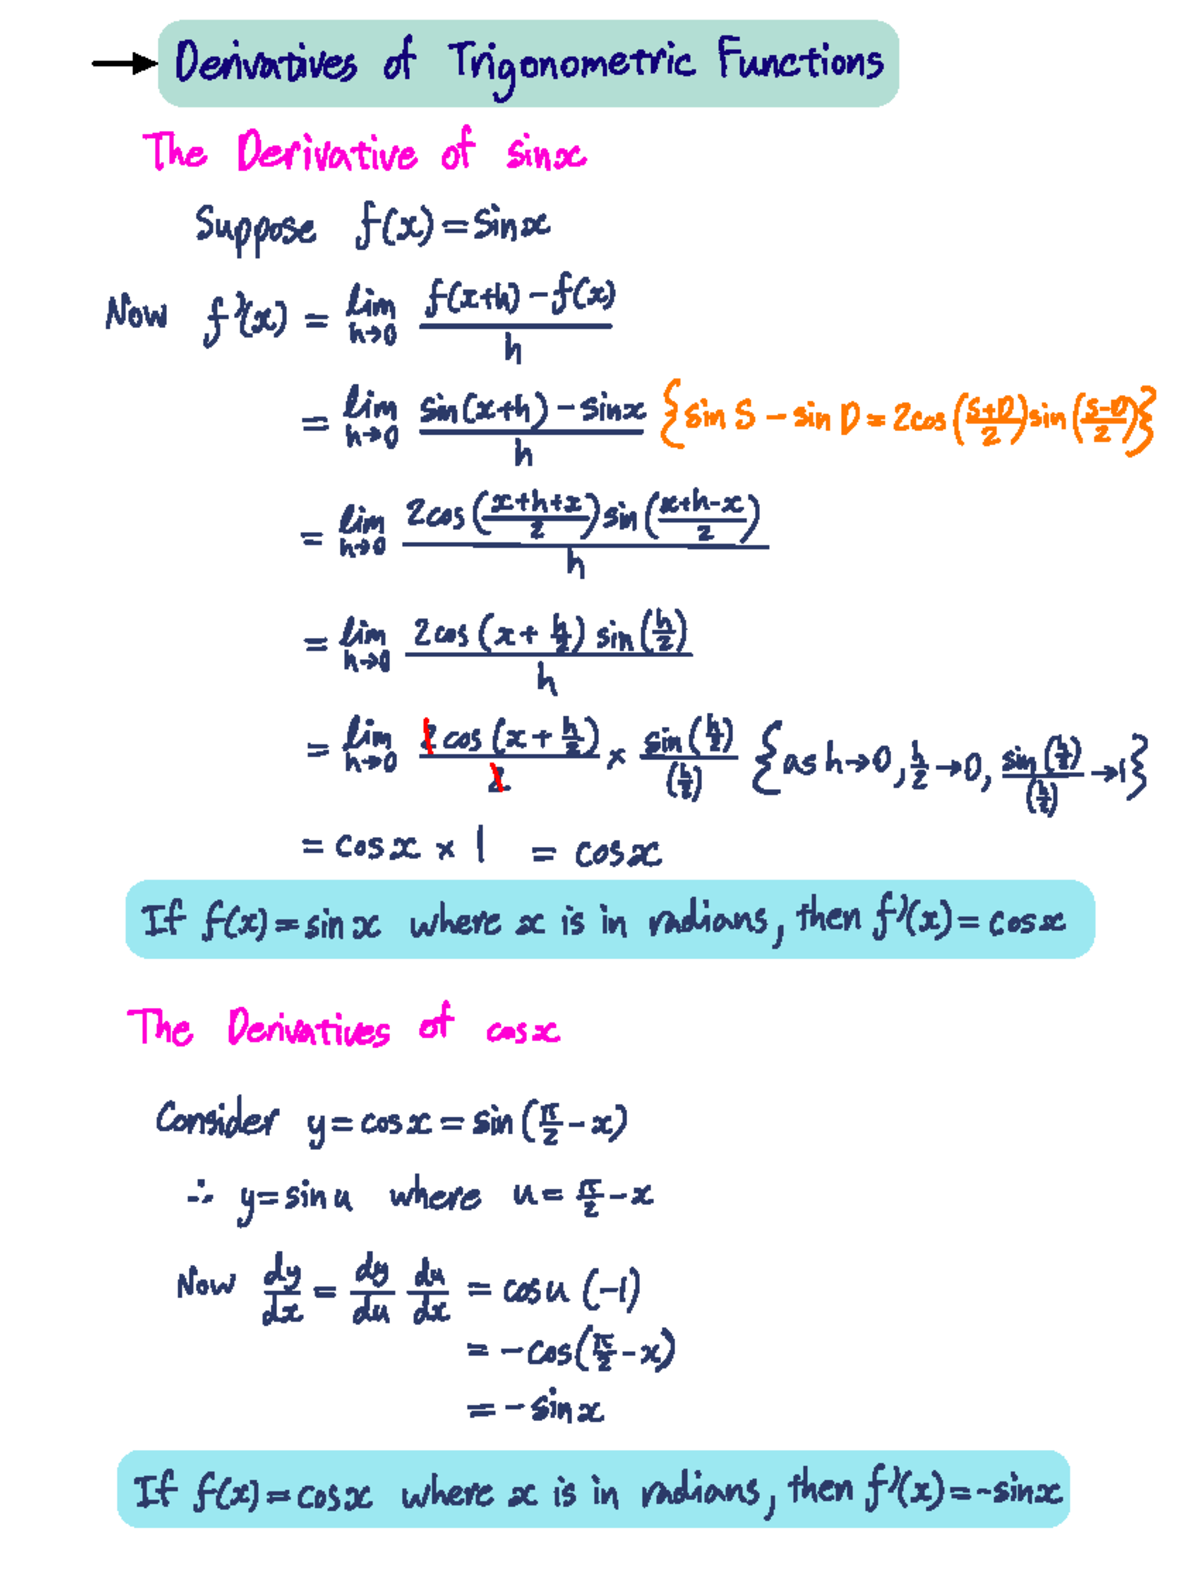 → Derivatives of Trigonometric Functions
The Derivative of sinx
Suppose f(x) = sinx
Now f'(x) = lim h→0 (f(x+h) − f(x))/h
= lim h→0 (sin(x+h) − sinx)/h {sin S − sin D = 2cos((S+D)/2)sin((S−D)/2)}
= lim h→0 (2cos((x+h+x)/2)sin((x+h−x)/2))/h
= lim h→0 (2cos(x + h/2) sin(h/2))/h
= lim h→0 (2cos(x + h/2))/2 × sin(h/2)/(h/2) {as h→0, h/2 →0, sin(h/2)/(h/2) →1}
= cosx × 1 = cosx
If f(x) = sinx where x is in radians, then f'(x) = cosx
The Derivatives of cosx
Consider y = cosx = sin(π/2 − x)
∴ y = sin u where u = π/2 − x
Now dy/dx = dy/du du/dx = cos u (−1)
= −cos(π/2 − x)
= −sinx
If f(x) = cosx where x is in radians, then f'(x) = −sinx